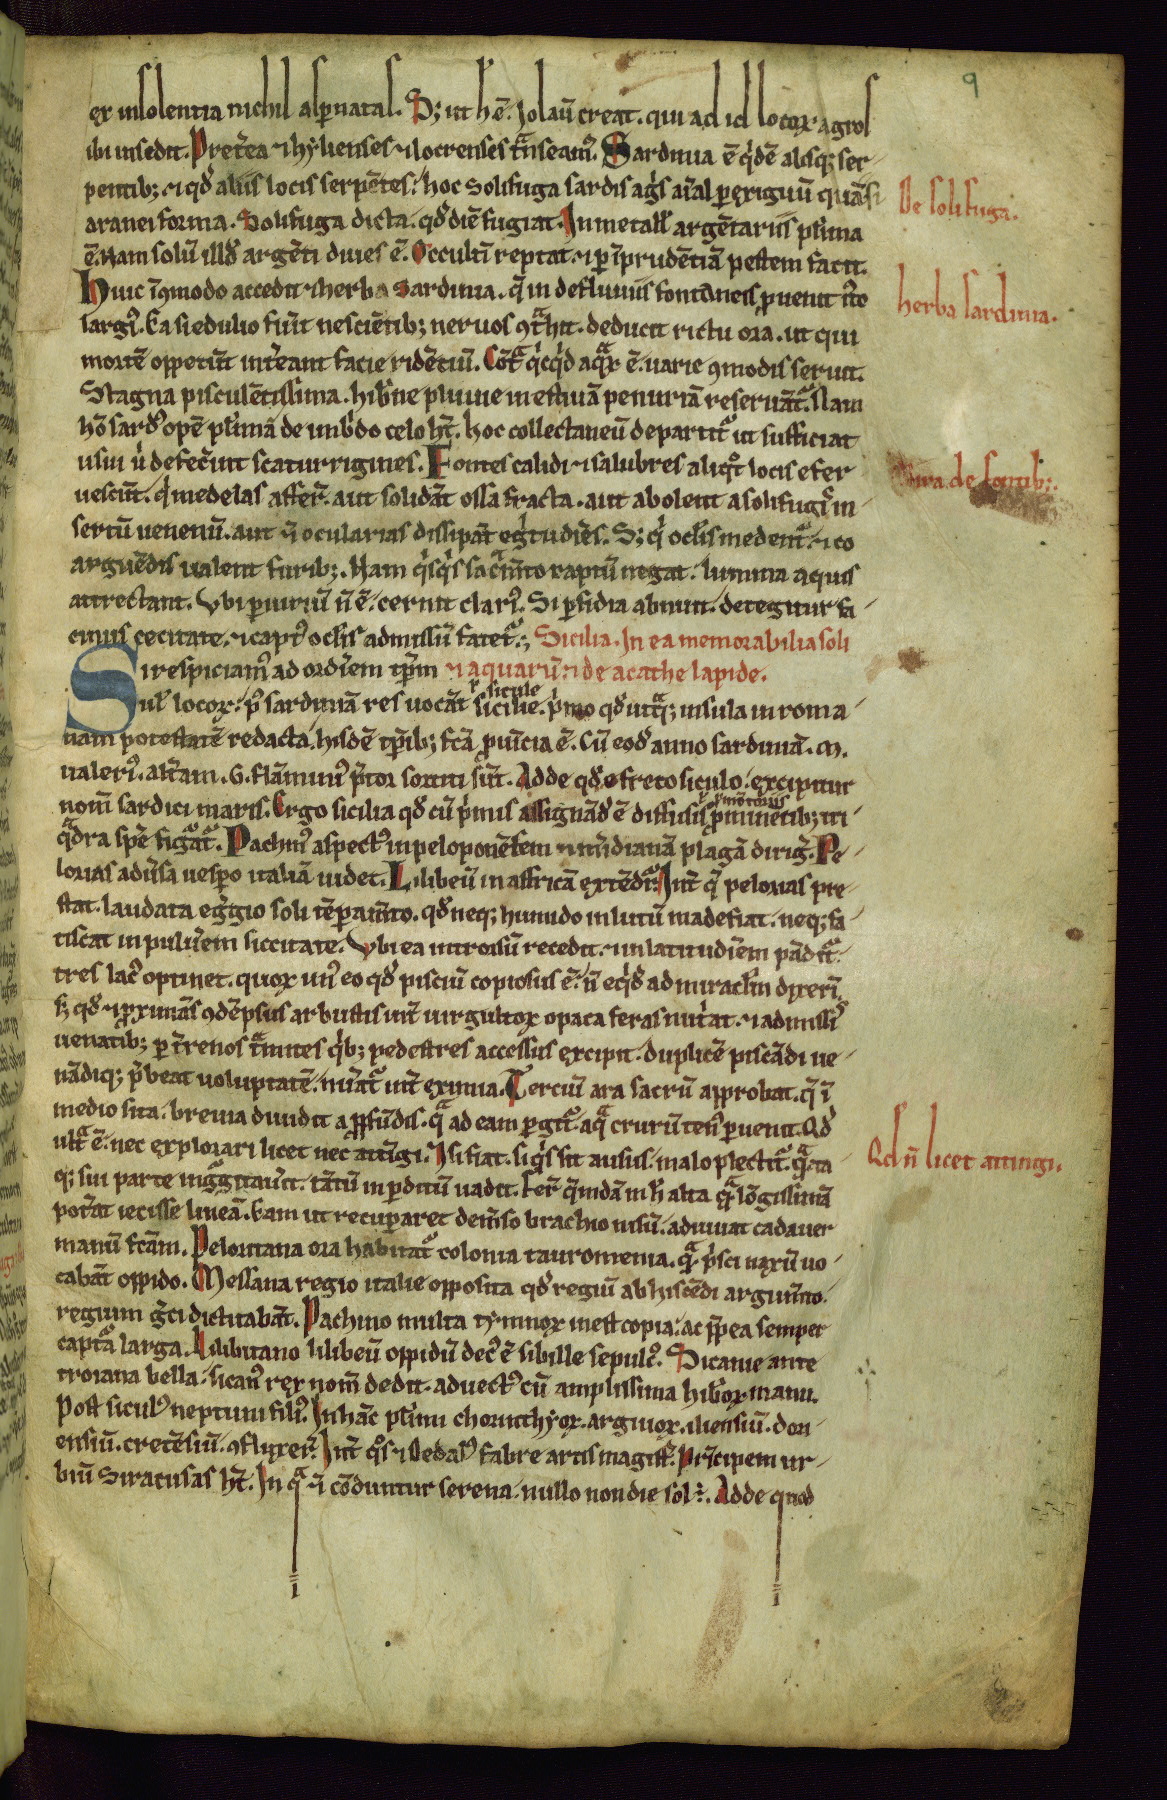 9
ex insolentia nichil aspnatas. S; ut hẽ. Jolaũ creat. qui ad id locoꝝ agros
ibi insedit. Pret̃ea ⁊ hylienses ⁊ locrenses t̃nseam᷒. Sardinia ẽ q͛dẽ absq; ser-
pentib;. ⁊ qd̃ aliis locis serpẽtes. hoc Solifuga sardis ag̃s aĩal ꝑexiguũ quãsi
aranei forma. Solifuga dicta. qd̃ diẽ fugiat. In metall̃ argẽtariis pl͛ima
ẽ. Nam solũ ill̃d argẽti diues ẽ. Occultĩ reptat. ⁊ ꝑ ĩprudẽtiã pestem facit.
Huic ĩꝯmodo accedit ⁊ herba Sardinia. q̃ in defluuiis fontaneis ꝓuenit iũto
larg᷒. Ea si edulio fũit nesciẽtib; neruos ꝯt̃hit. deducit rictu ora. ut qui
mortẽ oppetũt int̃eant facie ridẽtiũ. Cõt̃ q͛cq͛d aq̃ꝝ ẽ. uarie ꝯmodis seruit.
Stagna pisculẽtissima. hib̃ne pluuie in estiuã penuriã reseruãt᷒. Nam
hõ sard᷒ opẽ pl͛imã de imb͛do celo ht̃. hoc collectaneũ departit᷒ ut sufficiat
usui u͛ defec̃int scaturrigines. Fontes calidi ⁊ salubres aliq͛t locis efer
uesciũt. q͛ medelas affer̃. aut solidãt ossa fracta. aut abolent a solifug͛ in-
sertũ uenenũ. aut ⁊ ocularias dissipãt eg͛tudĩes. S; q͛ ocl̃is medent᷒. ⁊ co
arguẽdis ualent furib;. Nam q͛sq͛s sac̃m̃to raptũ negat. lumina aquis
attrectant. Vbi ꝑiuriũ ñ ẽ. cernit clar᷒. Si ꝑfidia abnuit. detegitur fa-
cinus cecitate. ⁊ capt᷒ ocl̃is admissũ fatet᷒.; Sicilia. In ea memorabilia soli
Si respiciam᷒ ad ordĩem tp̃m ⁊ aquarũ. ⁊ de acathe lapide.
ul͛ locoꝝ. p᷒ sardiniã res uocãt sicilie. p͛mo qd̃ ut̃q; insula in roma-
ꝉ sicule
nam potestatẽ redacta. hisdẽ tp̃ib; fc̃a ꝓuĩcia ẽ. Cũ eod̃ anno sardiniã. M.
ualeri᷒. alt̃am. G. flãmini᷒ p̃tor sortiti sũt. Adde qd̃ e freto siculo. excipitur
nom̃ sardici maris. Ergo sicilia qd̃ cũ p͛mis assignãd̃ ẽ diffusis ꝓminẽtib; tri
ꝉ ꝓmõtoriis
q̃dra spẽ figat᷒. Pachin᷒ aspect᷒ in peloponẽsem ⁊ m͛dianã plagã dirig̃. Pe-
lorias adũsa uespo italiã uidet. Lilibeũ in affricã extẽdit᷒. Int̃ q̃ pelorias pre-
stat. laudata eg̃gio soli tẽpam̃to. qd̃ neq; humido in lutũ madefiat. neq; fa-
tiscat in puluerem siccitate. Vbi ea introrsũ recedit. ⁊ in latitudĩem pãdit᷒.
tres lac᷒ optinet. quoꝝ un᷒ eo qd̃ pisciũ copiosus ẽ. ñ eq͛d̃ ad miracl̃m dixerĩ.
s; qd̃ ⁊ ꝓximãs ꝯdẽpsus arbustis int̃ uirgultoꝝ opaca feras nut͛at. ⁊ admissi᷒
uenatib; ꝑ t̃renos t̃mites q͛b; pedestres accessus excipit. duplicẽ piscãdi ue-
nãdiq; p̃beat uoluptatẽ. nũat᷒ int̃ eximia. Terciũ ara sacrũ approbat. q̃ ĩ
medio sita. breuia diuidit a ꝓfũdis. q̃ ad eam ꝑgit᷒. aq̃ crurũ ten᷒ ꝑuenit. Qd̃
ult̃ ẽ. nec explorari licet nec attĩgi. I si fiat. siq͛s sit ausus. malo plectit᷒. q̃ta
q; sui parte in g̃gitau͛it. tãtũ in ꝑditũ uadit. Fer̃ q̃mdã in h̃ alta q̃ lõgissimã
pot̃at iecisse lineã. Eam ut recuperaret dem̃so brachio nisũ. adiuuat cadauer
manũ fc̃am. Peloritana ora habitat᷒ colonia tauromenia. q̃ p͛sci naxũ uo-
cabãt oppido. Messana regio italie opposita qd̃ regiũ ab hiscẽdi argum̃to.
regium g̃ci dictitabãt. Pachino multa tẏnnoꝝ inest copia. ac ꝓpea semper
capt̃a larga. Lilibitano lilibeũ oppidũ dec᷒ ẽ sibille sepulc᷒. Sicanie ante
troiana bella. sican᷒ rex nom̃ dedit. aduect᷒ cũ amplissima hib͛oꝝ manu.
Post sicul᷒ neptuni fili᷒. In hãc pl͛imi chorinthyoꝝ. argiuoꝝ. iliensiũ. dori
ensiũ. cretẽsiũ. ꝯfluxer̃. Int̃ q͛s ⁊ Dedal᷒ fabre artis magist̃. Pr͛cipem ur-
biũ Siracusas ht̃. In q̃ ⁊ cõduntur serena. nullo non die sol ẽ. Adde quod
De solifuga.
herba sardinia.
Mira de fontib;.
Qd ñ licet attingi.